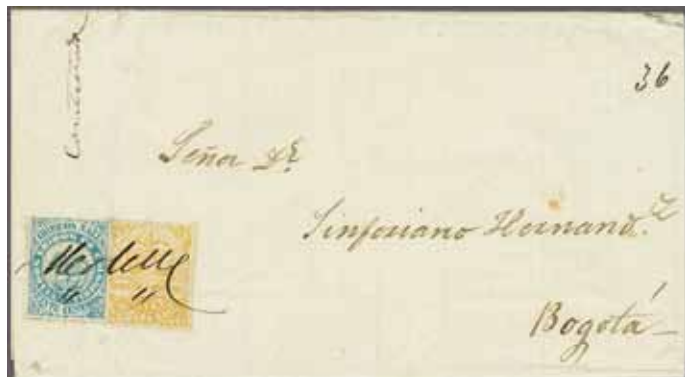 36
Señor Dr
Sinforiano Hernandz
Bogotá
Medellin